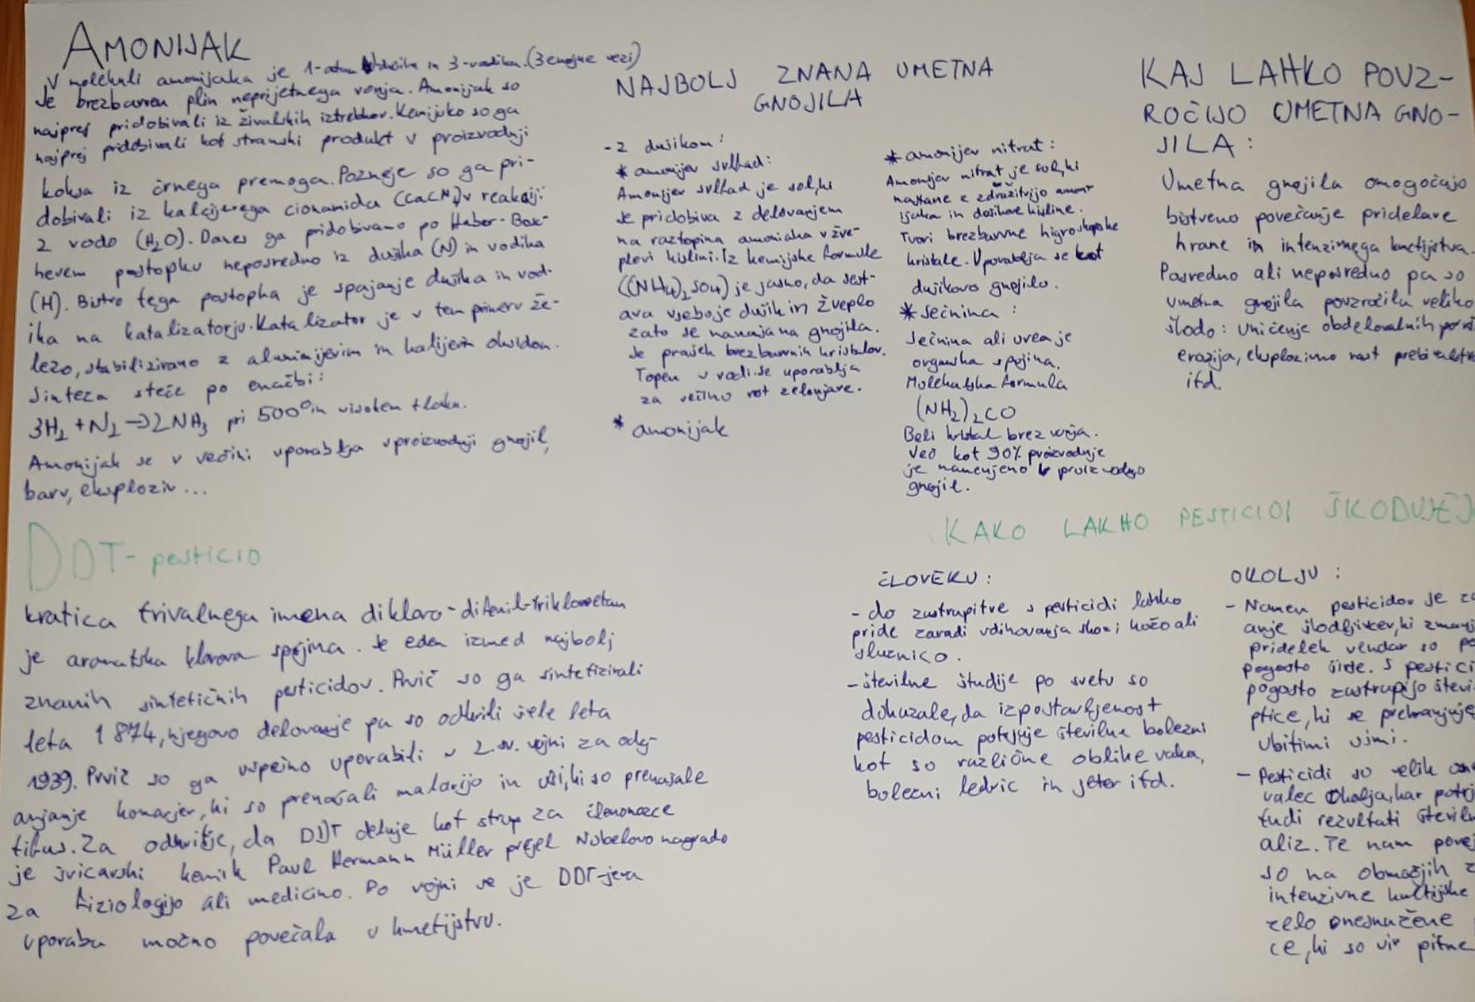 AMONIJAK
V molekuli amonijaka je 1-atom dušika in 3-vodika. (3 enojne vezi)
Je brezbarven plin neprijetnega vonja. Amonijak so
najprej pridobivali iz živalskih iztrebkov. Kemijsko so ga
najprej pridobivali kot stranski produkt v proizvodnji
koksa iz črnega premoga. Pozneje so ga pri-
dobivali iz kalcijevega cianamida (CaCN₂)v reakciji
z vodo (H₂O). Danes ga pridobivamo po Haber-Bosc-
hevem postopku neposredno iz dušika (N) in vodika
(H). Bistvo tega postopka je spajanje dušika in vod-
ika na katalizatorju. Katalizator je v tem primeru že-
lezo, stabilizirano z aluminijevim in kalijem oksidom.
Sinteza steče po enačbi:
3H₂ + N₂ → 2NH₃ pri 500° in visokem tlaku.
Amonijak se v večini uporablja v proizvodnji gnojil,
barv, eksploziv...
NAJBOLJ ZNANA UMETNA
GNOJILA
-z dušikom:
* amonijev sulfad:
Amonijev sulfad je sol, ki
se pridobiva z delovanjem
na raztopina amoniaka v žve-
plovi kislini. Iz kemijske formule
((NH₄)₂SO₄) je jasno, da sest-
ava vsebuje dušik in žveplo
zato se nanaša na gnojila.
Je prašek brezbarvnih kristalov.
Topen v vodi. Se uporablja
za večino vrt zelenjave.
* amonijak
* amonijev nitrat:
Amonijev nitrat je sol, ki
nastane z združitvijo amon-
ijaka in dušikove kisline.
Tvori brezbarvne higroskopske
kristale. Uporablja se kot
dušikovo gnojilo.
* sečnina:
Sečnina ali urea je
organska spojina.
Molekulska formula
(NH₂)₂CO
Beli kristal brez vonja.
Več kot 90% proizvodnje
je namenjeno v proizvodnjo
gnojil.
KAJ LAHKO POVZ-
ROČIJO UMETNA GNO-
JILA:
Umetna gnojila omogočajo
bistveno povečanje pridelave
hrane in intenzivnega kmetijstva.
Posredno ali neposredno pa so
umetna gnojila povzročila veliko
škodo: uničenje obdelovalnih
erozija, eksplozivno rast prebivalstva
itd.
DDT- pesticid
kratica trivalnega imena dikloro-difenil-trikloroetan
je aromatska klorova spojina. Je eden izmed najbolj
znanih sintetičnih pesticidov. Prvič so ga sintetizirali
leta 1874, njegovo delovanje pa so odkrili šele leta
1939. Prvič so ga uspešno uporabili v 2. sv. vojni za odg-
anjanje komarjev, ki so prenašali malarijo in uši, ki so prenašale
tifus. Za odkritje, da DDT deluje kot strup za členonožce
je švicarski kemik Paul Hermann Müller prejel Nobelovo nagrado
za fiziologijo ali medicino. Po vojni se je DDT-jeva
uporaba močno povečala v kmetijstvu.
KAKO LAKHO PESTICIDI ŠKODUJEJ
ČLOVEKU:
- do zastrupitve s pesticidi lahko
pride zaradi vdihovanja skozi kožo ali
sluznico.
- številne študije po svetu so
dokazale, da izpostavljenost
pesticidom potrjuje številne bolezni
kot so različne oblike raka,
bolezni ledvic in jeter itd.
OKOLJU:
- Namen pesticidov je za
anje škodljivcev, ki zmanj
pridelek vendar so po
pogosto širše. S pestici
pogosto zastrupijo števi
ptice, ki se prehranjuje
ubitimi
- Pesticidi so velik one
valec okolja, kar potrj
tudi rezultati številn
aliz. Te nam povej
so na območjih z
intenzivne kmetijske
zelo onesnažene
ce, ki so vir pitne